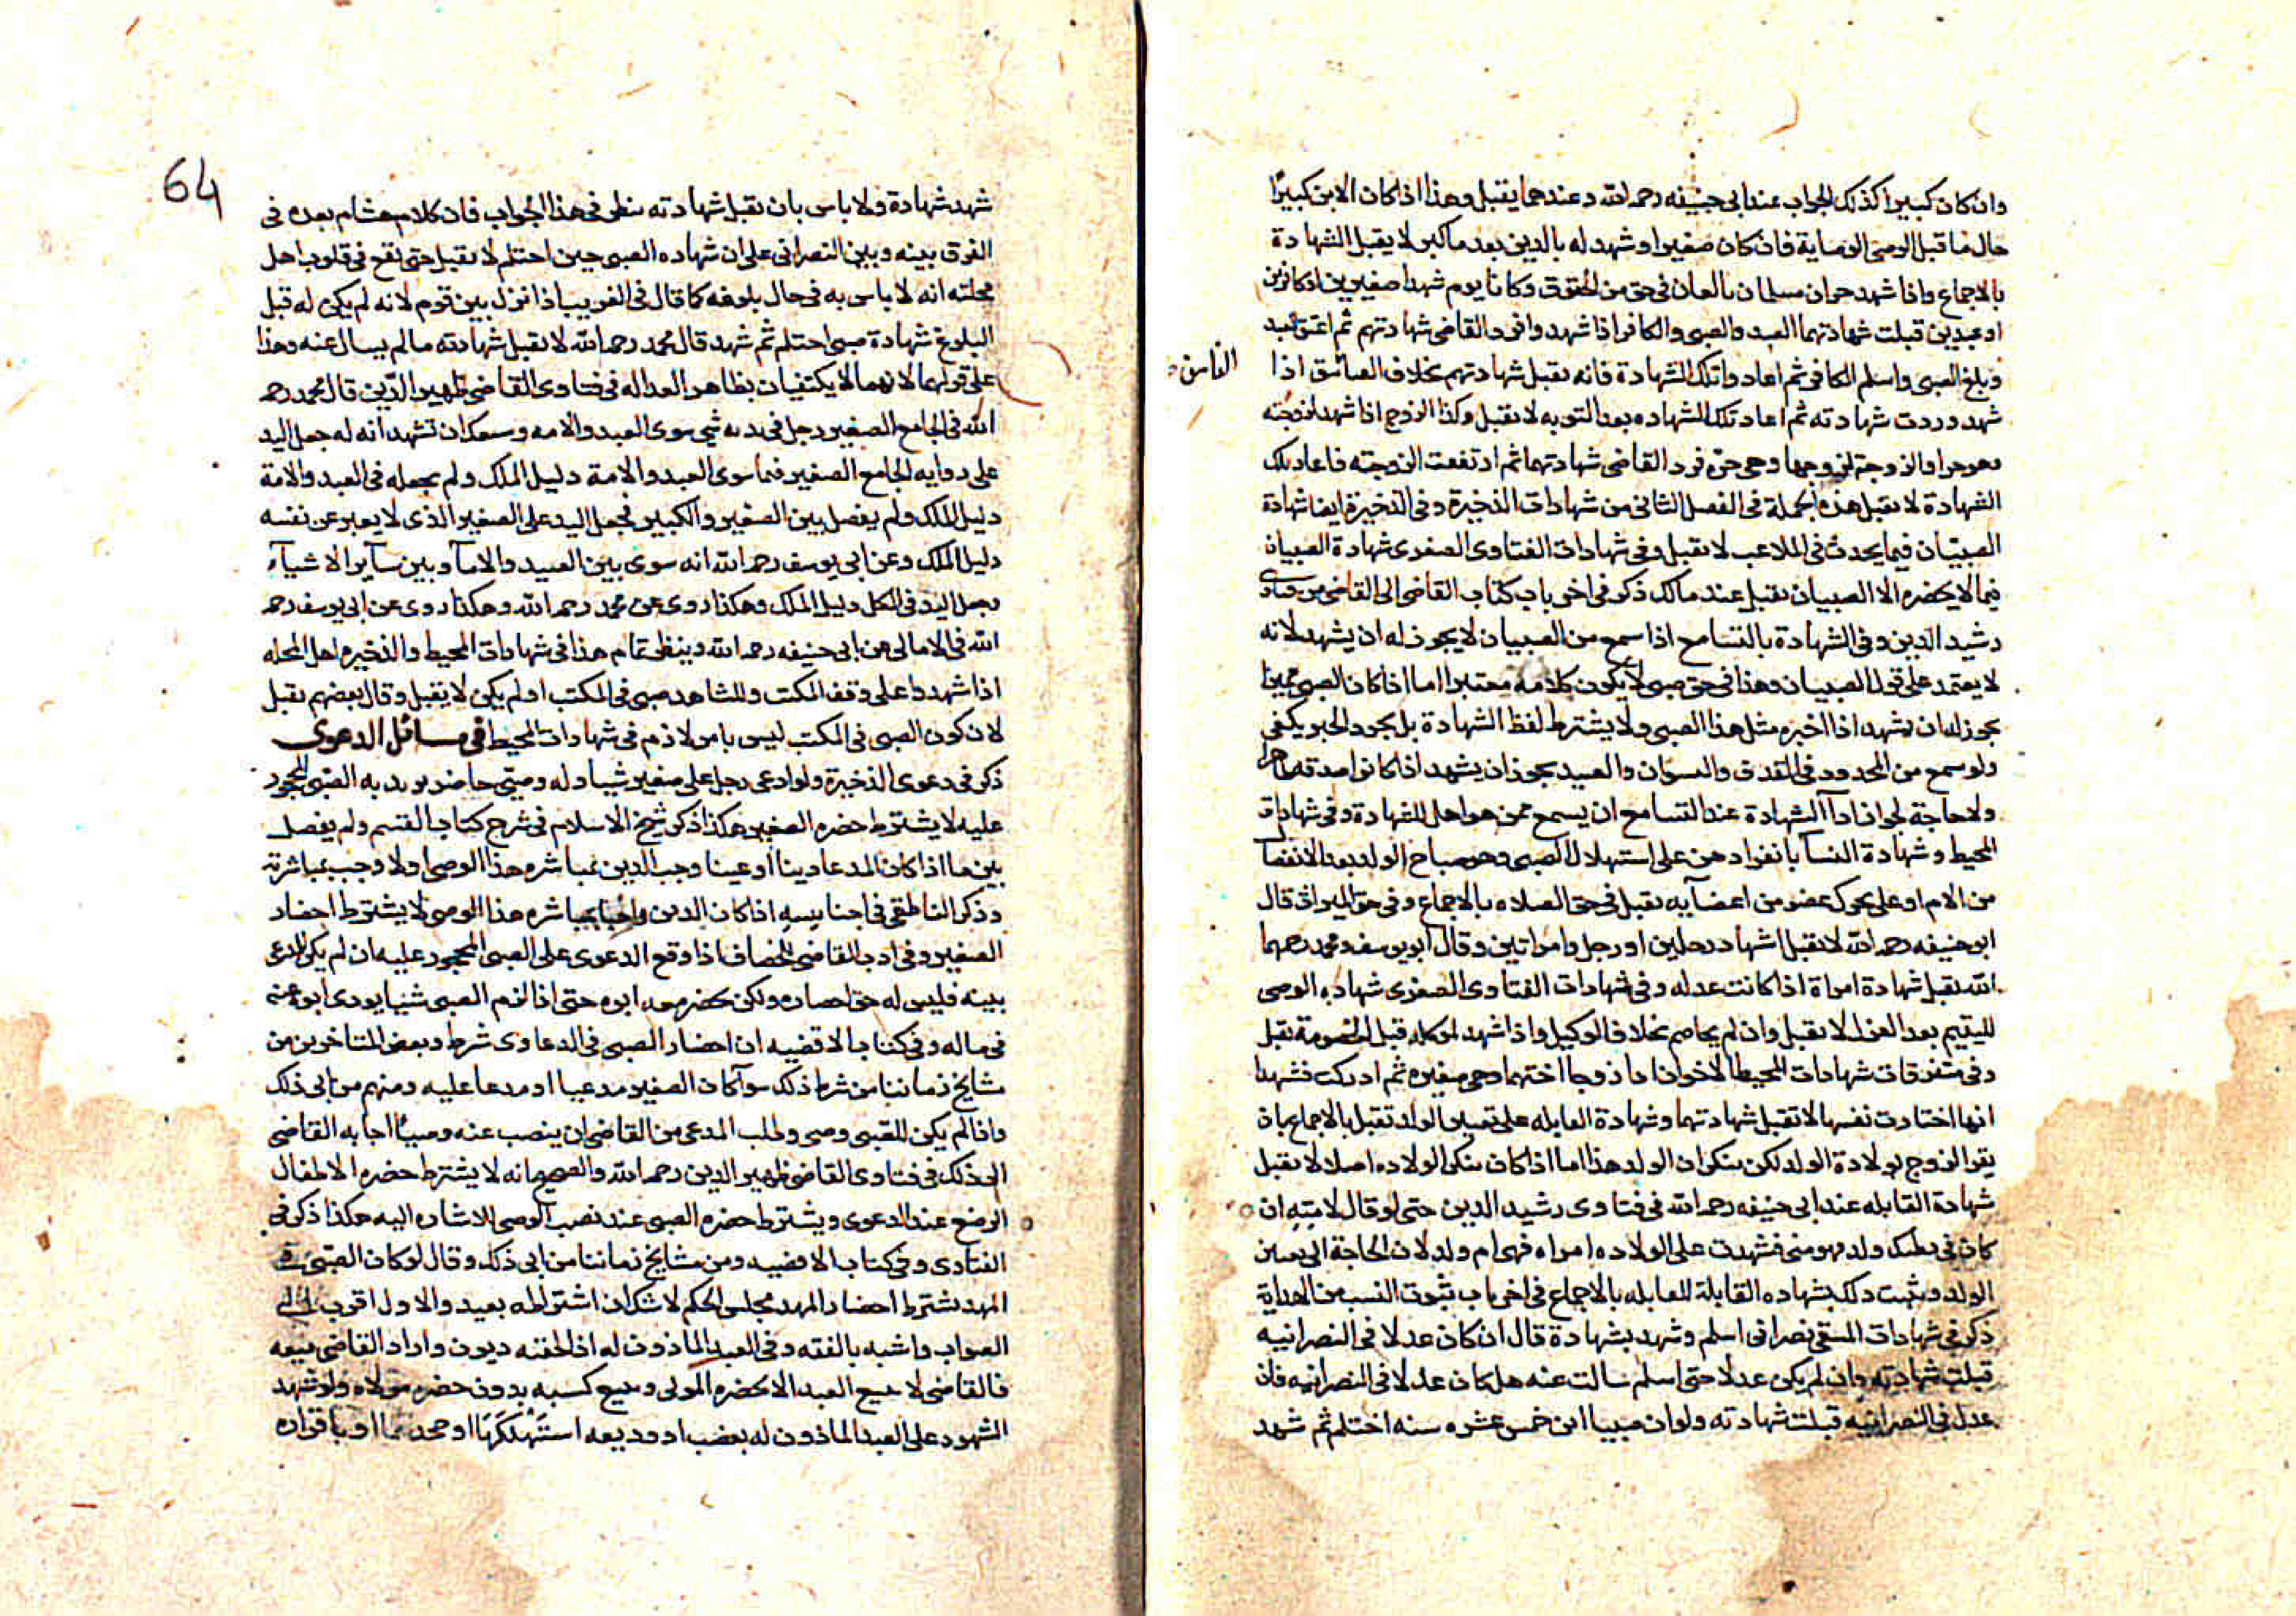 وان كان كبيرا كذلك الجواب عند ابى حنيفه رحمه الله وعندهما يقبل وهذا اذا كان الابن كبيرًا
حال ما قبل الوصى الوصاية فان كان صغيرا وشهد له بالدين بعد ما كبر لا يقبل الشهادة
بالاجماع واذا شهد حران مسلمان بالغان فى حق من الحقوق وكانا يوم شهدا صغيرين او كافرين
او عبدين قبلت شهادتهما العبد والصبى والكافر اذا شهدوا فرد القاضى شهادتهم ثم اعتق العبد
وبلغ الصبى واسلم الكافر ثم اعادوا تلك الشهادة فانه يقبل شهادتهم بخلاف الفاسق اذا
الفاسق
شهد وردت شهادته ثم اعاد تلك الشهاده بعد التوبه لا يقبل وكذا الزوج اذا شهد لزوجته
وهو حر او الزوجة لزوجها وهى حره فرد القاضى شهادتهما ثم ارتفعت الزوجته فاعاد تلك
الشهادة لا يقبل هذه الجملة فى الفصل الثانى من شهادات الذخيرة وفى الذخيرة ايضا شهادة
الصبيان فيما يحدث فى الملاعب لا يقبل وفى شهادات الفتاوى الصغرى شهادة الصبيان
فيما لا يحضره الا الصبيان يقبل عند مالك ذكر فى اخر باب كتاب القاضى الى القاضى من فتاوى
رشيد الدين وفى الشهادة بالتسامح اذا سمع من الصبيان لا يجوز له ان يشهد لانه
لا يعتمد على قول الصبيان وهذا فى حق صبى لا يكون كلامه معتبرا اما اذا كان الصبى مميزا
يجوز له ان يشهد اذا اخبره مثل هذا الصبى ولا يشترط لفظ الشهادة بل مجرد الخبر يكفى
ولو سمع من المحدود فى القذف والنسوان والعبيد يجوز ان يشهد اذا كانوا صدقه
ولا حاجة لجواز ادآ الشهادة عند التسامح ان يسمع ممن هو اهل للشهادة وفى شهادات
المحيط وشهادة النسآ بانفرادهن على استهلال الصبى وهو صياح الولد بعد الانفصال
من الام او على تحرك عضو من اعضآيه يقبل فى حق الصلاه بالاجماع وفى حق الميراث قال
ابو حنيفه رحمه الله لا تقبل اشهاد رجلين او رجل وامراتين وقال ابو يوسف ومحمد رحمهما
الله يقبل شهادة امراة اذا كانت عدله وفى شهادات الفتاوى الصغرى شهاده الوصى
لليتيم بعد العزل لا تقبل وان لم يخاصم بخلاف الوكيل واذا شهد لموكله قبل الخصومة يقبل
وفى متفرقات شهادات المحيط الاخوان اذا زوجا اختهما وهى صغيره ثم ادركت فشهدا
انها اختارت نفسها لا تقبل شهادتهما وشهادة القابله على تعيين الولد تقبل بالاجماع بان
يقر الزوج بولادة الولد لكن ينكر ان الولد هذا اما اذا كان ينكر الولاده اصلا لا يقبل
شهادة القابله عند ابى حنيفه رحمه الله فى فتاوى رشيد الدين حتى لو قال لامته ان
كان فى بطنك ولد فهو منى فشهدت على الولاده امراه فهى ام ولد لان الحاجة الى تعيين
الولد ويثبت ذلك بشهاده القابلة بالاجماع فى اخر باب ثبوت النسب من الهداية
ذكر فى شهادات المنتقى نصرانى اسلم وشهد بشهادة قال ان كان عدلا فى النصرانيه
قبلت شهادته وان لم يكن عدلا حتى اسلم سالت عنه هل كان عدلا فى النصرانيه فان
عدل فى النصرانيه قبلت شهادته ولو ان صبيا ابن خمس عشره سنه احتلم ثم شهد
64
شهد شهادة ولا باس بان يقبل شهادته ينظر فى هذا الجواب فان كلام هشام بعده فى
الفرق بينه وبين النصرانى على ان شهاده الصبى حين احتلم لا يقبل حتى يقع فى قلوب اهل
محلته انه لا باس به فى حال بلوغه كما قال فى الغريب اذا نزل بين قوم لانه لم يكن له قبل
البلوغ شهادة صبى احتلم ثم شهد قال محمد رحمه الله لا تقبل شهادته ما لم يسال عنه وهذا
على قولهما لانهما لا يكتفيان بظاهر العداله فى فتاوى القاضى ظهير الدّين قال محمد رحمه
الله فى الجامع الصغير رجل فى يده شى سوى العبد والامه وسعك ان تشهد انه له جعل اليد
على روايه الجامع الصغير فيما سوى العبد والامة دليل الملك ولم يجعله فى العبد والامة
دليل الملك ولم يفصل بين الصغير والكبير فجعل اليد على الصغير الذى لا يعبر عن نفسه
دليل الملك وعن ابى يوسف رحمه الله انه سوى بين العبيد والامآ وبين سآير الاشيآء
وجعل اليد فى الكل دليل الملك وهكذا روى عن محمد رحمه الله وهكذا روى عن ابى يوسف رحمه
الله فى الامالى عن ابى حنيفه رحمه الله وينظر تمام هذا فى شهادات المحيط والذخيره اهل المحله
اذا شهدوا على وقف المكتب وللشاهد صبى فى المكتب او لم يكن لا يقبل وقال بعضهم يقبل
لان كون الصبى فى المكتب ليس بامر لازم فى شهادات المحيط فى مسائل الدعوى
ذكر فى دعوى الذخيرة ولو ادعى رجل على صغير شيا وله وصيّ حاضر يريد به الصّبى المحجور
عليه لا يشترط حضره الصغير هكذا ذكر شيخ الاسلام فى شرح كتاب القسم ولم يفصل
بين ما اذا كان المدعا دينا او عينا وجب الدين بمباشره هذا الوصى او لا وجب بمباشرته
وذكر الناطفى فى اجناسه اذا كان الدين واجبا بمباشره هذا الوصى لا يشترط احضار
الصغير وفى ادب القاضى للخصاف اذا وقع الدعوى على الصبى المحجور عليه ان لم يكن للمدعى
بينه فليس له حق احضاره ولكن يحضر معه ابوه حتى اذا لزم الصبى شيا يودى ابوه عنه
فى ماله وفى كتاب الاقضيه ان احضار الصبى فى الدعاوى شرط وبعض المتاخرين من
مشايخ زماننا من شرط ذلك سوآ كان الصغير مدعيا او مدعا عليه ومنهم من ابى ذلك
واذا لم يكن للصبى وصى وطلب المدعى من القاضى ان ينصب عنه وصيًا اجابه القاضى
الى ذلك فى فتاوى القاضى ظهير الدين رحمه الله والصحيح انه لا يشترط حضره الاطفال
الرضع عند الدعوى ويشترط حضره الصبى عند نصب الوصى للاشاره اليه هكذا ذكر فى
الفتاوى وفى كتاب الاقضيه ومن مشايخ زماننا من ابى ذلك وقال لو كان الصّبى فى
المهد يشترط احضار المهد مجلس الحكم لا شك ان اشتراطه بعيد والاول اقرب الى
الصواب واشبه بالفقه وفى العبد الماذون له اذا لحقته ديون واراد القاضى بيعه
فالقاضى لا يبيع العبد الا بحضره المولى ويبيع كسبه بدون حضره مولاه ولو شهد
الشهود على العبد الماذون له بغصب او وديعه استهلكها او جحدها او باقراره